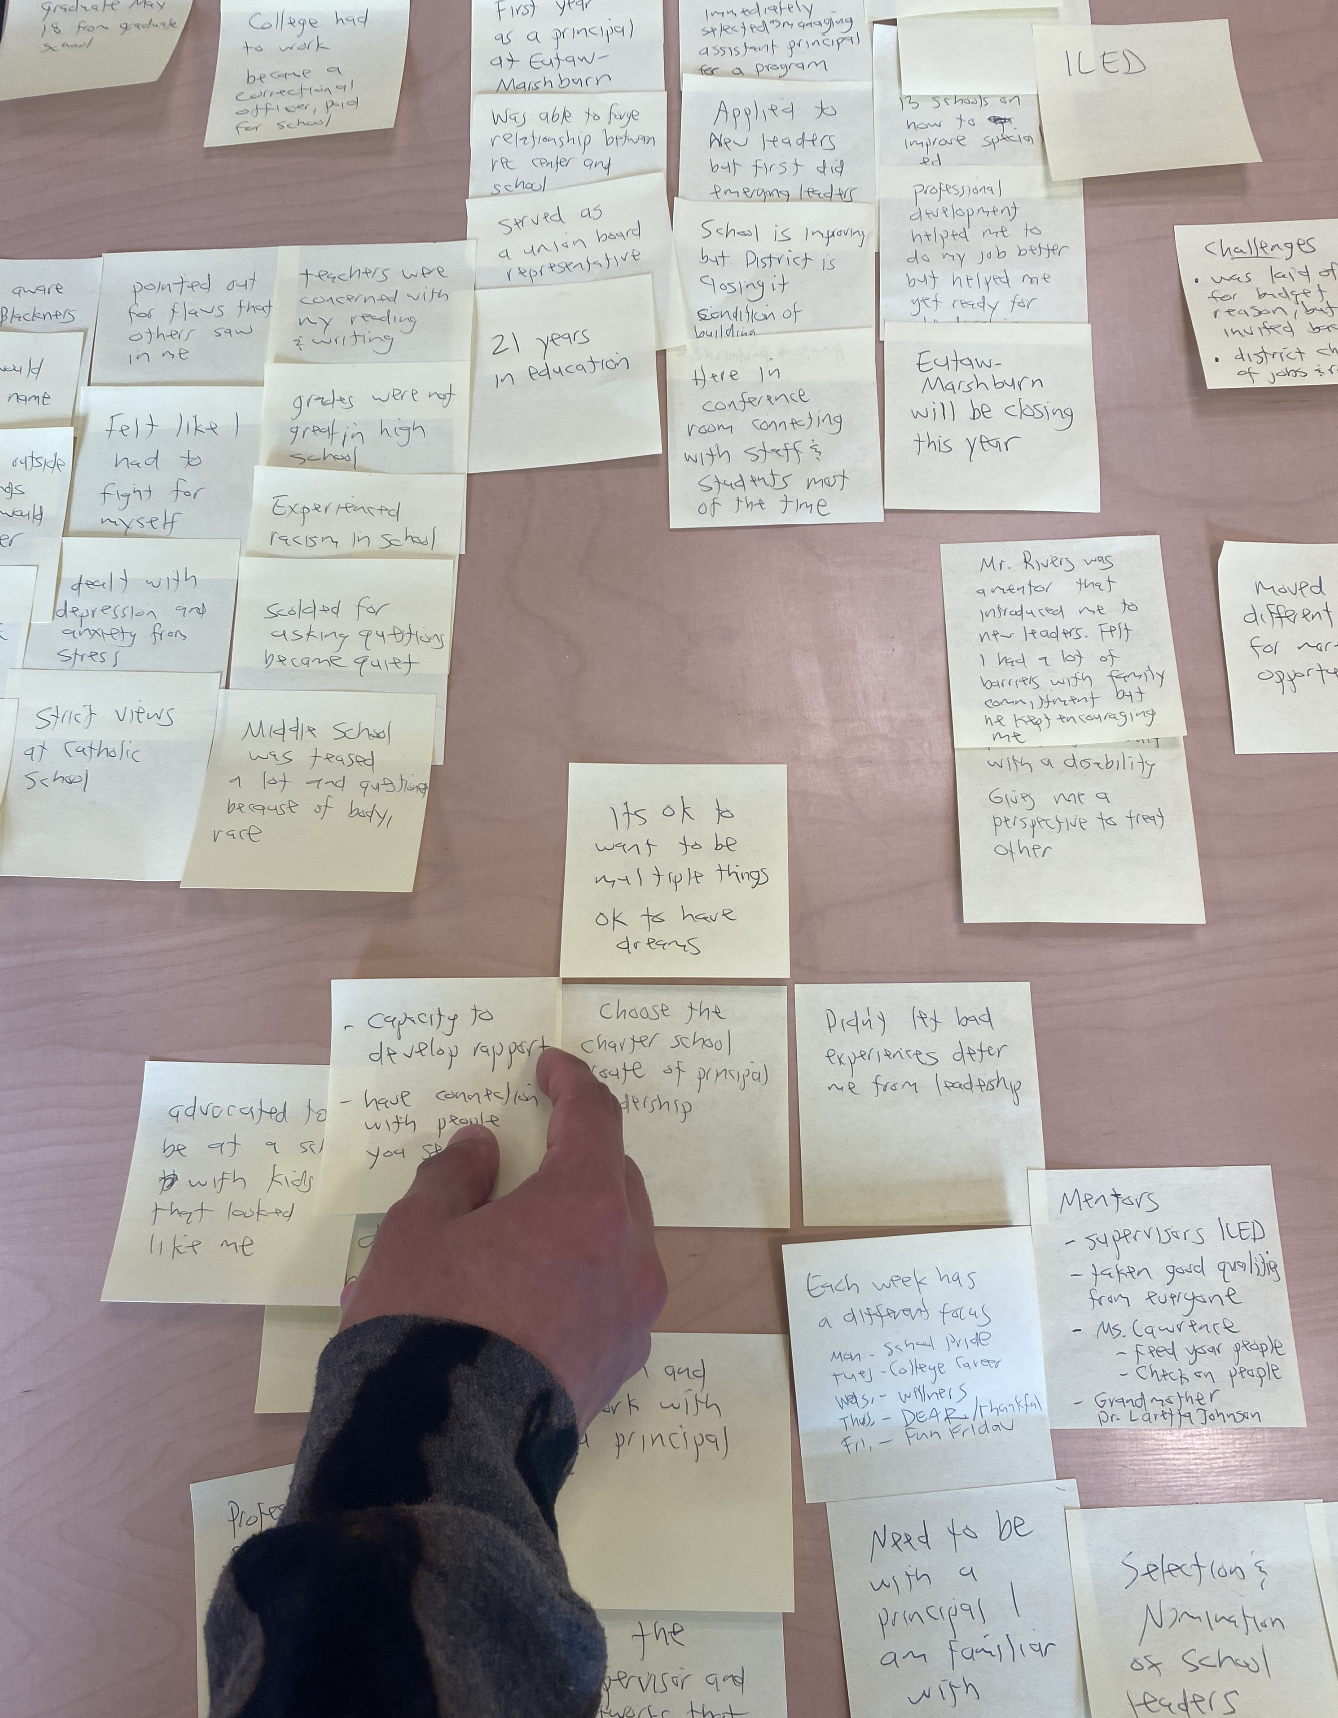 graduate May
18 from graduate
school
College had
to work
became a
correctional
officer, paid
for school
First year
as a principal
at Eutaw-
Marshburn
Was able to forge
relationship between
rec center and
school
served as
a union board
representative
21 years
in education
Immediately
selected managing
assistant principal
for a program
Applied to
New Leaders
but first did
emerging leaders
School is improving
but District is
closing it
condition of
building
Here in
conference
room connecting
with staff &
students most
of the time
13 schools on
how to
improve special
ed
professional
development
helped me to
do my job better
but helped me
get ready for
Eutaw-
Marshburn
will be closing
this year
ILED
Challenges
• was laid of
for budget
reason, but
invited bac
• district ch
of jobs & r
aware
Blackness
ould
name
outside
would
er
pointed out
for flaws that
others saw
in me
Felt like I
had to
fight for
myself
dealt with
depression and
anxiety from
stress
Strict views
at Catholic
School
teachers were
concerned with
my reading
& writing
grades were not
great in high
school
Experienced
racism in school
scolded for
asking questions
became quiet
Middle School
was teased
a lot and questions
because of body,
race
Mr. Rivers was
a mentor that
introduced me to
new leaders. Felt
I had a lot of
barriers with family
commitment but
he kept encouraging
me
with a disability
Gives me a
perspective to treat
other
moved
different
for mor
opportu
Its ok to
want to be
multiple things
ok to have
dreams
- capacity to
develop rapport
- have connection
with people
you se
Choose the
charter school
route of principal
dership
Didn't let bad
experiences deter
me from leadership
advocated to
be at a sc
with kids
that looked
like me
Mentors
- supervisors ILED
- taken good qualities
from everyone
- Ms. Lawrence
- Feed your people
- Check on people
- Grandmother
Dr. Laretta Johnson
Each week has
a different focus
Mon - School Pride
Tues - College Career
Weds. - Wellness
Thus. - DEAR/Thankful
Fri. - Fun Friday
and
ork with
a principal
Profes
the
pervisor and
tworks that
Need to be
with a
principal I
am familiar
with
Selection &
Nomination
of School
leaders